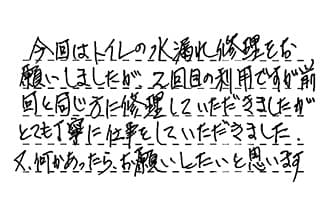 今回はトイレの水漏れ修理をお
願いしましたが、2回目の利用ですが前
回と同じ方に修理していただきましたが
とても丁寧に仕事をしていただきました.
又、何かあったら、お願いしたいと思います